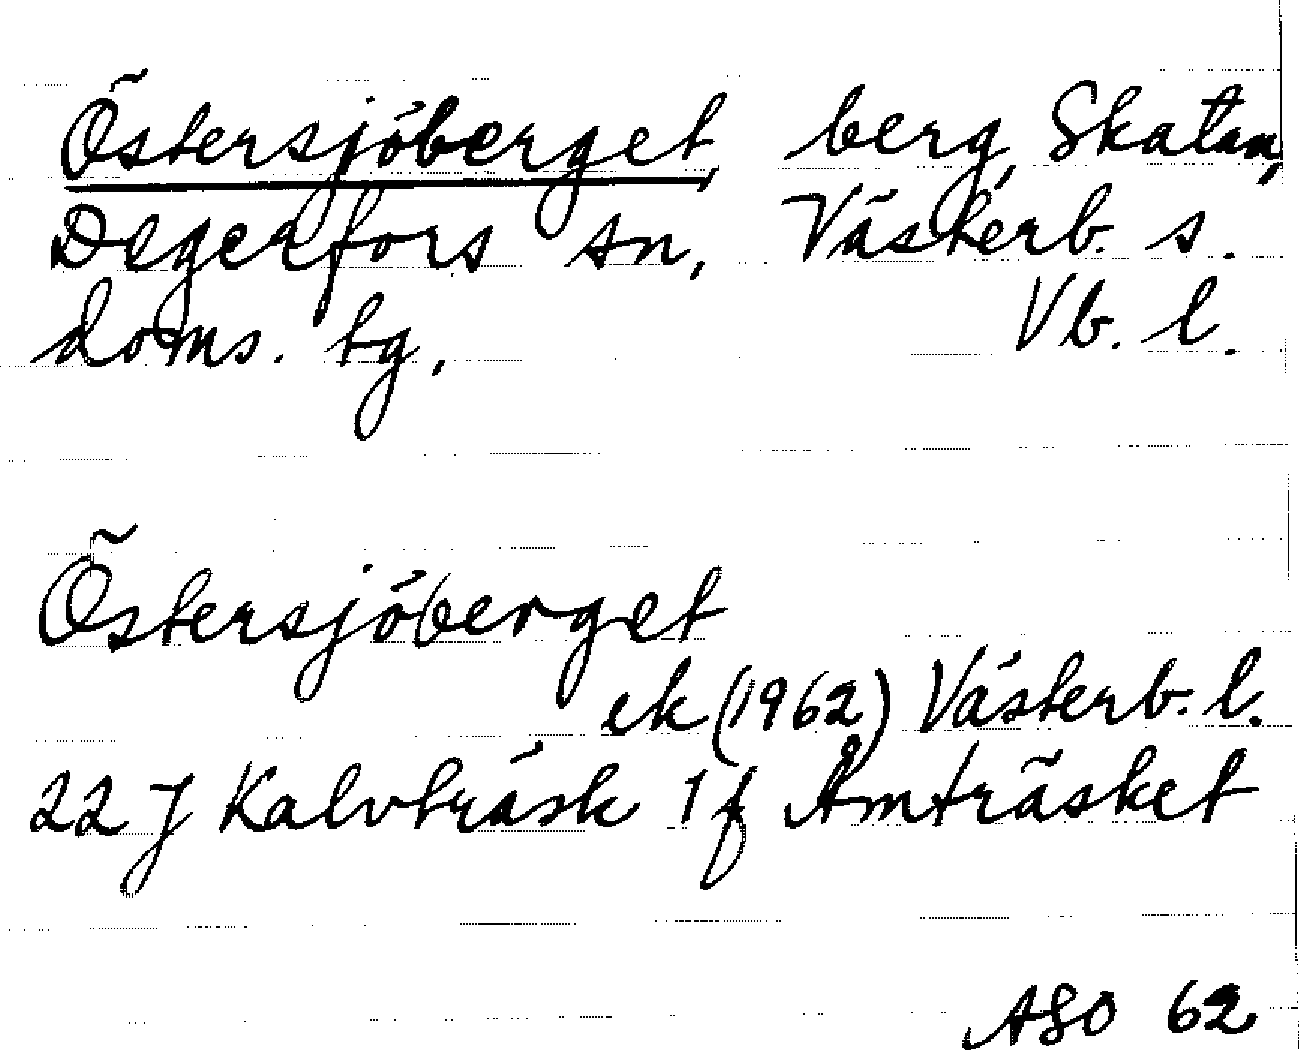 Östersjöberget, berg, Skatan,
Degerfors sn, Västerb. s.
doms. tg, Vb. l.
Östersjöberget
ek (1962) Västerb. l.
22 J Kalvträsk 1f Åmträsket
ASO 62